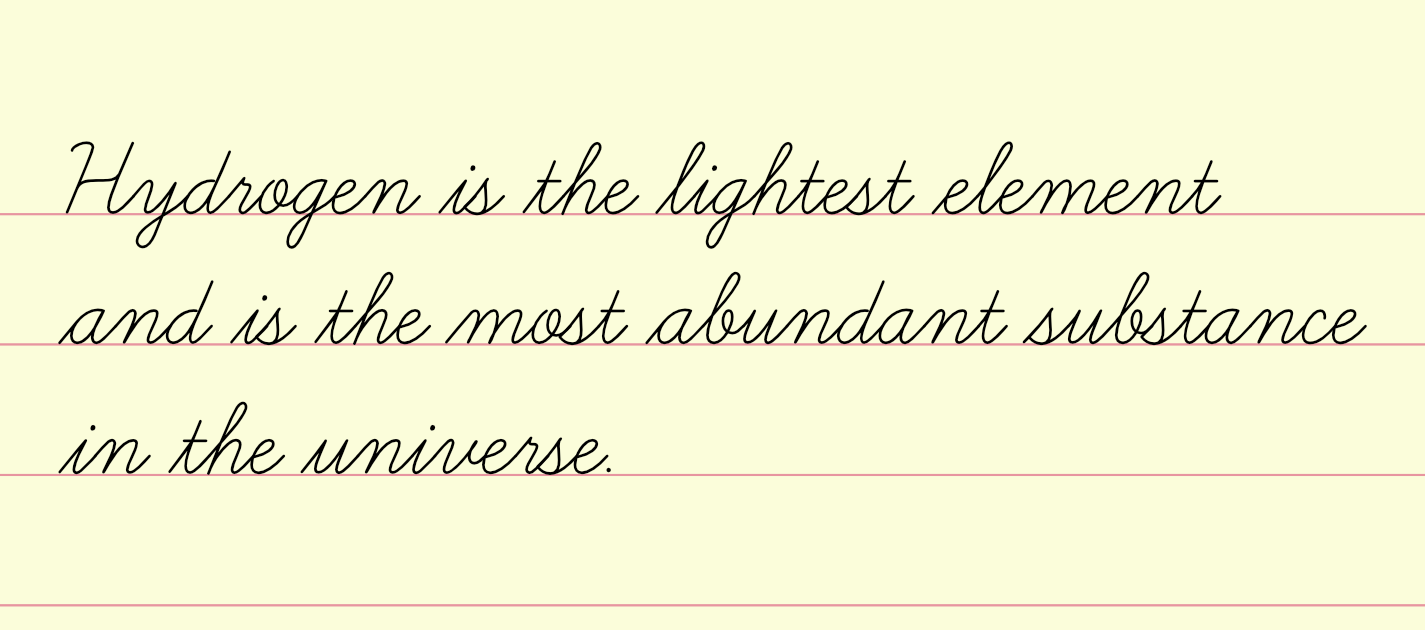 Hydrogen is the lightest element
and is the most abundant substance
in the universe.